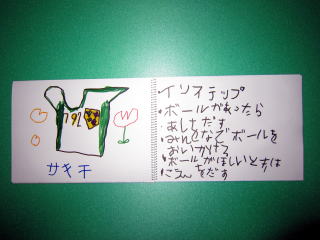 792
W
サキ干
インステップ
・ボールがあったら
あしをだす
・みんなでボールを
おいかける
・ボールがほしいときは
こえをだす